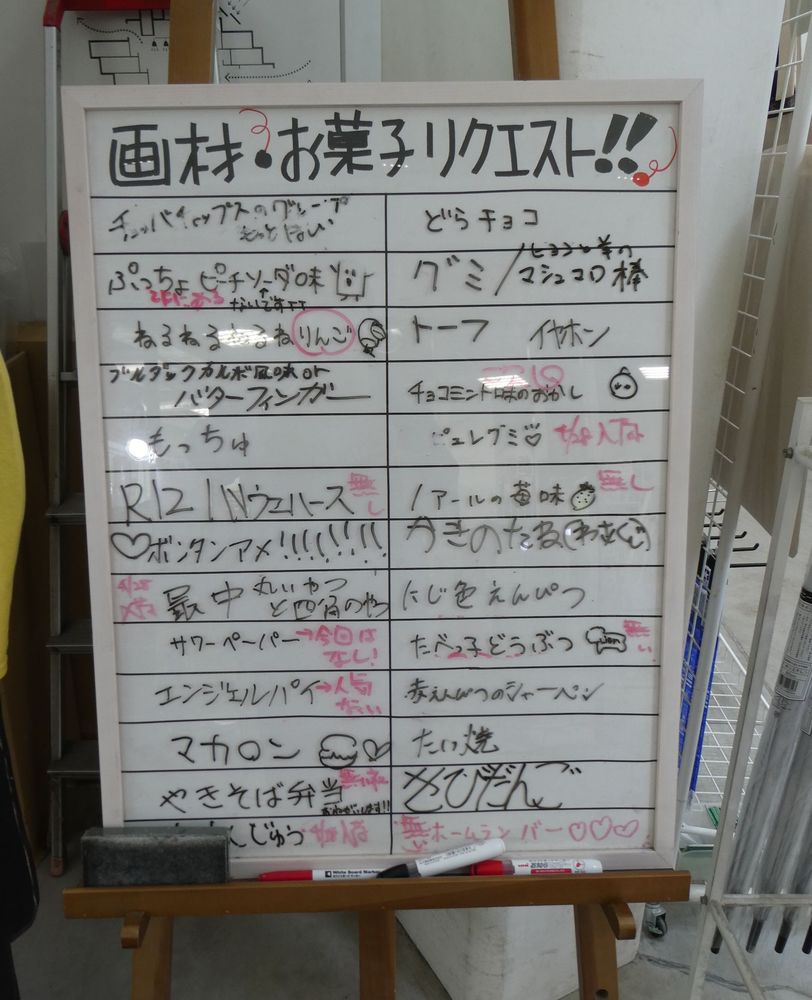 画材・お菓子リクエスト!!
どらチョコ
ぷっちょピーチソーダ味
ないです
グミ/
マシュマロ棒
ねるねるねるねりんご
トーフ イヤホン
ブルダックカルボ風味or
バターフィンガー
チョコミント味のおかし
もっちゅ
ピュレグミ 4/28入荷
RIZINウエハース 無し
ノアールの苺味 無し
ボンタンアメ!!!!!!!!
かきのたね(わさび)
4/28
最中 丸いやつ
と四角のやつ
にじ色えんぴつ
サワーペーパー→今回は
なし!
たべっ子どうぶつ 無い
エンジェルパイ→人気
ない
赤えんぴつのシャーペン
マカロン
たい焼
やきそば弁当
おねがいします!!
きびだんご
んじゅう
無い ホームランバー♡♡♡
White Board Marker